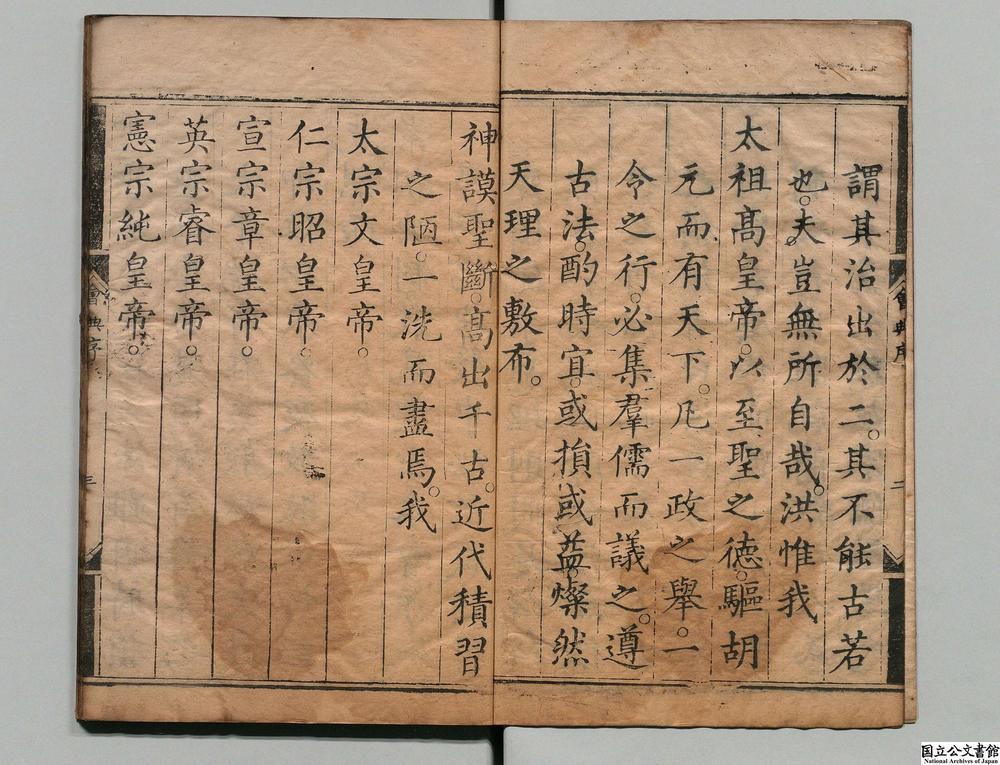 謂其治出於二。其不能古若
也。夫豈無所自哉。洪惟我
太祖髙皇帝。以至聖之德。驅胡
元而有天下。凡一政之舉。一
令之行。必集羣儒而議之。遵
古法。酌時宜。或損或益。燦然
天理之敷布。
神謨聖斷。髙出千古。近代積習
之陋。一洗而盡焉。我
太宗文皇帝。
仁宗昭皇帝。
宣宗章皇帝。
英宗睿皇帝。
憲宗純皇帝。
會典序
二
會典序
三
国立公文書館
National Archives of Japan